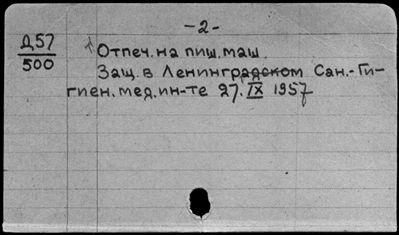 -2-
Д57
500
Отпеч. на пиш. маш.
Защ. в Ленинградском Сан.-Ги-
гиен. мед. ин-те 27. IX 1957